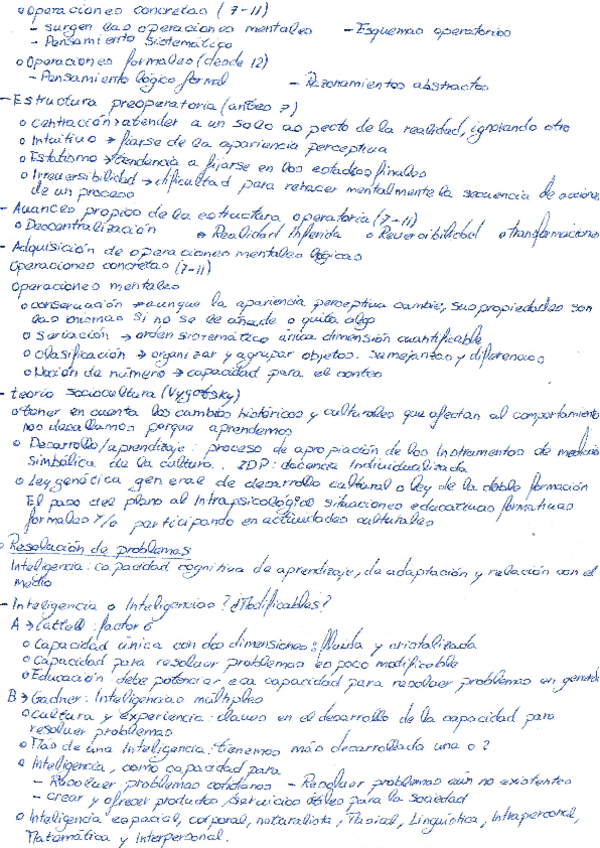 o Operaciones concretas (7-11)
- surgen las operaciones mentales - Esquemas operatorios
- Pensamiento Sistemático
o Operaciones formales (desde 12)
- Pensamiento lógico formal - Razonamientos abstractos
- Estructura preoperatoria (antes 7)
o Centración → atender a un solo aspecto de la realidad, ignorando otro
o Intuitivo → fiarse de la apariencia perceptiva
o Estatismo → tendencia a fijarse en los estados finales
o Irreversibilidad → dificultad para rehacer mentalmente la secuencia de acciones
de un proceso
- Avances propios de la estructura operatoria (7-11)
o Descentralización o Realidad Inferida o Reversibilidad o transformaciones
- Adquisición de operaciones mentales lógicas
Operaciones concretas (7-11)
Operaciones mentales
o conservación → aunque la apariencia perceptiva cambie, sus propiedades son
las mismas si no se le añade o quita algo
o Seriación → orden sistemático única dimensión cuantificable
o clasificación → organizar y agrupar objetos. Semejanzas y diferencias
o Noción de número → capacidad para el conteo
- teoría sociocultura (Vygotsky)
o tener en cuenta los cambios históricos y culturales que afectan al comportamiento
nos desallamos porque aprendemos
o Desarrollo/aprendizaje: proceso de apropiación de los Instrumentos de mediación
simbólica de la cultura. ZDP: docencia Individualizada
o Ley genética general de desarrollo cultural o ley de la doble formación
El paso del plano al Intrapsicológico situaciones educativas formativas
formales y/o participando en actividades culturales
o Resolución de problemas
Inteligencia: capacidad cognitiva de aprendizaje, de adaptación y relación con el
medio
- Inteligencia o Inteligencias? ¿Modificables?
A → Cattell: factor G
o Capacidad única con dos dimensiones: fluida y cristalizada
o Capacidad para resolver problemas es poco modificable
o Educación: debe potenciar esa capacidad para resolver problemas en general
B → Gadner: Inteligencias múltiples
o cultura y experiencia: claves en el desarrollo de la capacidad para
resolver problemas
o Más de una Inteligencia: tenemos más desarrollada una o ?
o Inteligencia, como capacidad para
- Resolver problemas cotidianos - Resolver problemas aún no existentes
- crear y ofrecer productos, servicios útiles para la sociedad
o Inteligencia espacial, corporal, naturalista, Musical, Linguística, Intrapersonal,
Matemática y Interpersonal.